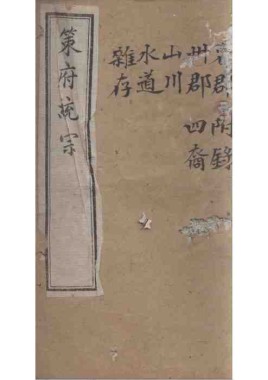 附錄
州郡 四裔
山川
水道
雜存
策府統宗